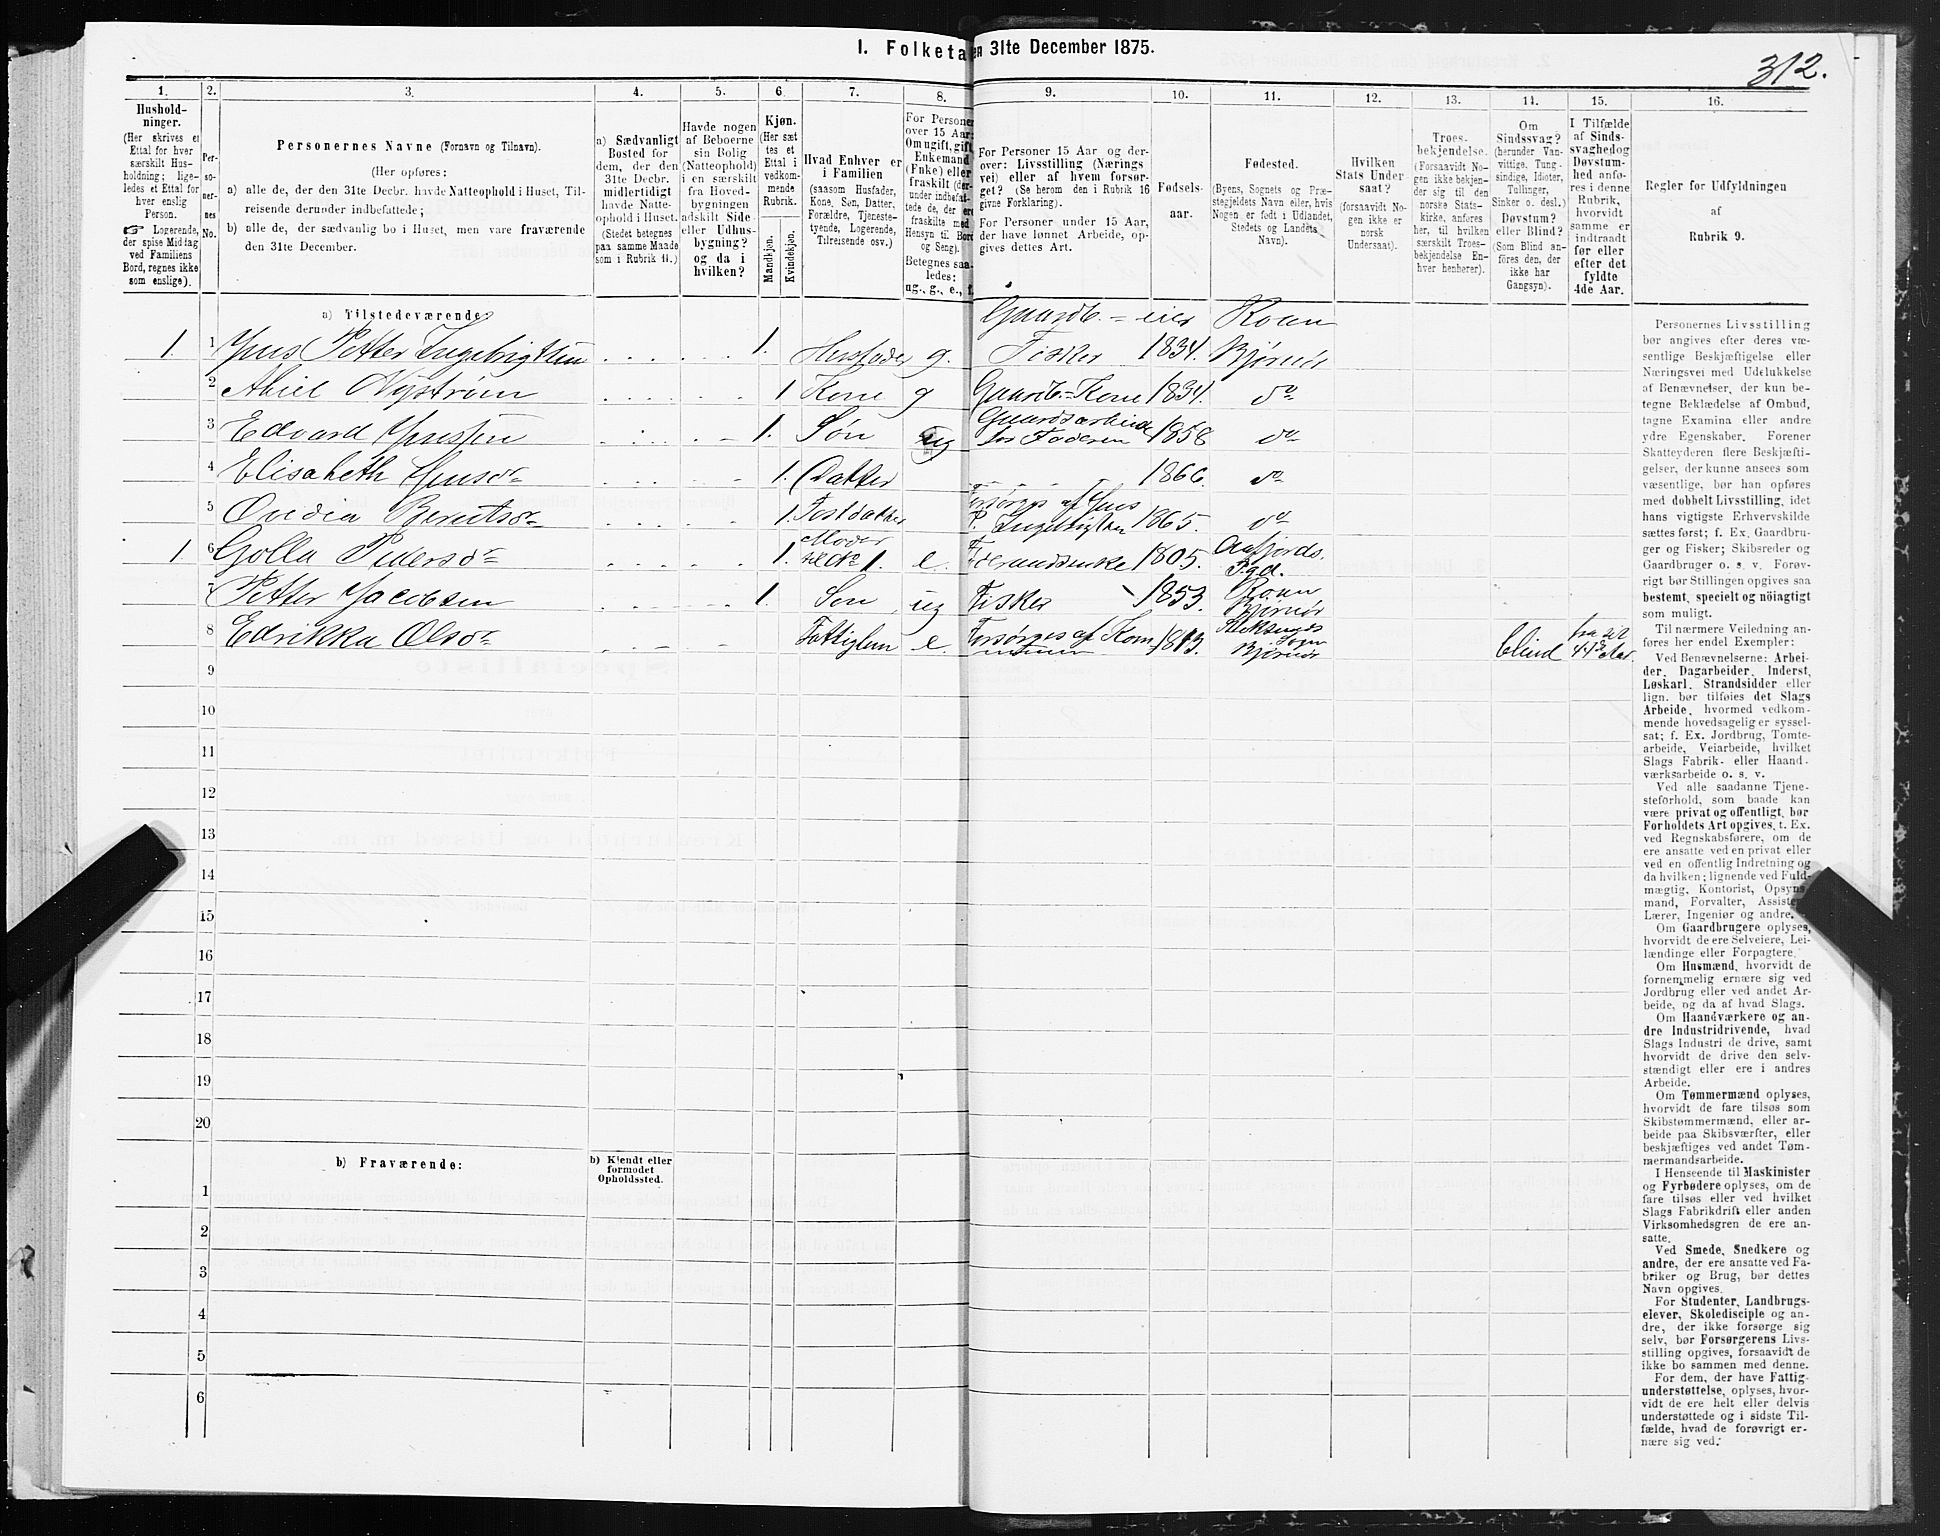 I. Folketa en 31te December 1875.
312.
1. 2. 3. 4. 5. 6. 7. 8. 9. 10. 11. 12. 13. 14. 15. 16.
Hushold-
ninger.
(Her skrives et
Ettal for hver
særskilt Hus-
holdning; lige-
ledes et Ettal for
hver enslig
Person.
☞ Logerende,
der spise Middag
ved Familiens
Bord, regnes ikke
som enslige).
Per-
so-
ner-
nes
No.
Personernes Navne (Fornavn og Tilnavn).
(Her opføres:
a) alle de, der den 31te Decbr. havde Natteophold i Huset, Til-
reisende derunder indbefattede;
b) alle de, der sædvanlig bo i Huset, men vare fraværende
den 31te December.
a) Sædvanligt
Bosted for
dem, der den
31te Decbr.
midlertidigt
havde Natte-
ophold i Huset.
(Stedet betegnes
paa samme Maade
som i Rubrik 11.)
Havde nogen
af Beboerne
sin Bolig
(Natteophold)
i en særskilt
fra Hoved-
bygningen
adskilt Side-
eller Udhus-
bygning?
og da i
hvilken?
Kjøn.
(Her sæt-
tes et
Ettal i
vedkom-
mende
Rubrik.
Mandkjøn.
Kvindekjøn.
Hvad Enhver er
i Familien
(saasom Husfader,
Kone, Søn, Datter,
Forældre, Tjeneste-
tyende, Logerende,
Tilreisende osv.)
For Personer
over 15 Aar:
Om ugift, gift,
Enkemand
(Enke) eller
fraskilt (der-
under indbefat-
tede de, der ere
fraskilte med
Hensyn til Bord
og Seng).
Betegnes saa-
ledes:
ug., g., e., f.
For Personer 15 Aar og der-
over: Livsstilling (Nærings
vei) eller af hvem forsør-
get? (Se herom den i Rubrik 16
givne Forklaring).
For Personer under 15 Aar,
der have lønnet Arbeide, op-
gives dettes Art.
Fødsels-
aar.
Fødested.
(Byens, Sognets og Præ-
stegjeldets Navn eller, hvis
Nogen er født i Udlandet,
Stedets og Landets
Navn).
Hvilken
Stats Under-
saat?
(forsaavidt No-
gen ikke er
norsk
Undersaat).
Troes-
bekjendelse.
(Forsaavidt No-
gen ikke bekjen-
der sig til den
norske Stats-
kirke, anføres
her, til hvilken
særskilt Troes-
bekjendelse En-
hver henhører).
Om
Sindssvag?
(herunder Van-
vittige, Tung-
sindige, Idioter,
Tullinger,
Sinker o. desl.)
Døvstum?
eller Blind?
(Som Blind an-
føres den, der
ikke har
Gangsyn).
I Tilfælde
af Sinds-
svaghed og
Døvstum-
hed anfø-
res i denne
Rubrik,
hvorvidt
samme er
indtraadt
før eller
efter det
fyldte
4de Aar.
Regler for Udfyldningen
af
Rubrik 9.
a) Tilstedeværende:
Gaardb.=eier Roan
1. 1 Jens Petter Ingebrigtsen 1. Husfader g. Fisker 1834. Bjørnør
2 Abiel Nystrøm 1 Kone g Gaardb.=Kone 1834. do
3 Edvard Jenssen 1. Søn ug Gaardsarbeide
for Faderen 1858 do
4 Elisabeth Jensdr 1. Datter 1866. do
5 Ovidia Berntsdr 1. Fostdatter Forsørges af Jens
P. Ingebrigtsen 1865. do
1 6 Golla Pedersdr 1. Moder
til No 1. e. Føderaadsenke 1805. Aafjords
Pgd.
7 Petter Jacobsen 1. Søn ug Fisker 1853. Roan
Bjørnør
8 Edrikka Olsdr Fattiglem e. Forsørges af Kom-
munen 1813. Stoksunds
Sogn
Bjørnør blind fra sit
44de Aar.
9
10
11
12
13
14
15
16
17
18
19
20
b) Fraværende:
b) Kjendt eller
formodet
Opholdssted.
1
2
3
4
5
6
Personernes Livsstilling
bør angives efter deres væ-
sentlige Beskjæftigelse eller
Næringsvei med Udelukkelse
af Benævnelser, der kun be-
tegne Beklædelse af Ombud,
tagne Examina eller andre
ydre Egenskaber. Forener
Skatteyderen flere Beskjæfti-
gelser, der kunne ansees som
væsentlige, bør han opføres
med dobbelt Livsstilling, idet
hans vigtigste Erhvervskilde
sættes først; f. Ex. Gaardbru-
ger og Fisker; Skibsreder og
Gaardbruger o. s. v. Forøv-
rigt bør Stillingen opgives saa
bestemt, specielt og nøiagtigt
som muligt.
Til nærmere Veiledning an-
føres her endel Exempler:
Ved Benævnelserne: Arbei-
der, Dagarbeider, Inderst,
Løskarl, Strandsidder eller
lign. bør tilføies det Slags
Arbeide, hvormed vedkom-
mende hovedsagelig er syssel-
sat; f. Ex. Jordbrug, Tomte-
arbeide, Veiarbeide, hvilket
Slags Fabrik- eller Haand-
værksarbeide o. s. v.
Ved alle saadanne Tjene-
steforhold, som baade kan
være privat og offentligt, bør
Forholdets Art opgives, t. Ex.
ved Regnskabsførere, om de
ere ansatte ved en privat eller
ved en offentlig Indretning og
da hvilken; lignende ved Fuld-
mægtig, Kontorist, Opsyns-
mand, Forvalter, Assistent,
Lærer, Ingeniør og andre.
Om Gaardbrugere oplyses,
hvorvidt de ere Selveiere, Lei-
lændinge eller Forpagtere.
Om Husmænd, hvorvidt de
fornemmelig ernære sig ved
Jordbrug eller ved andet Ar-
beide, og da af hvad Slags.
Om Haandværkere og an-
dre Industridrivende, hvad
Slags Industri de drive, samt
hvorvidt de drive den selv-
stændigt eller ere i andres
Arbeide.
Om Tømmermænd oplyses,
hvorvidt de fare tilsøs som
Skibstømmermænd, eller ar-
beide paa Skibsværfter, eller
beskjæftiges ved andet Tøm-
mermandsarbeide.
I Henseende til Maskinister
og Fyrbødere oplyses, om de
fare tilsøs eller ved hvilket
Slags Fabrikdrift eller anden
Virksomhedsgren de ere an-
satte.
Ved Smede, Snedkere og
andre, der ere ansatte ved Fa-
briker og Brug, bør dettes
Navn opgives.
For Studenter, Landbrugs-
elever, Skoledisciple og an-
dre, der ikke forsørge sig
selv, bør Forsørgerens Livs-
stilling opgives, forsaavidt de
ikke bo sammen med denne.
For dem, der have Fattig-
understøttelse, oplyses, hvor-
vidt de ere helt eller delvis
understøttede og i sidste Til-
fælde, hvad de forøvrigt er-
nære sig ved.